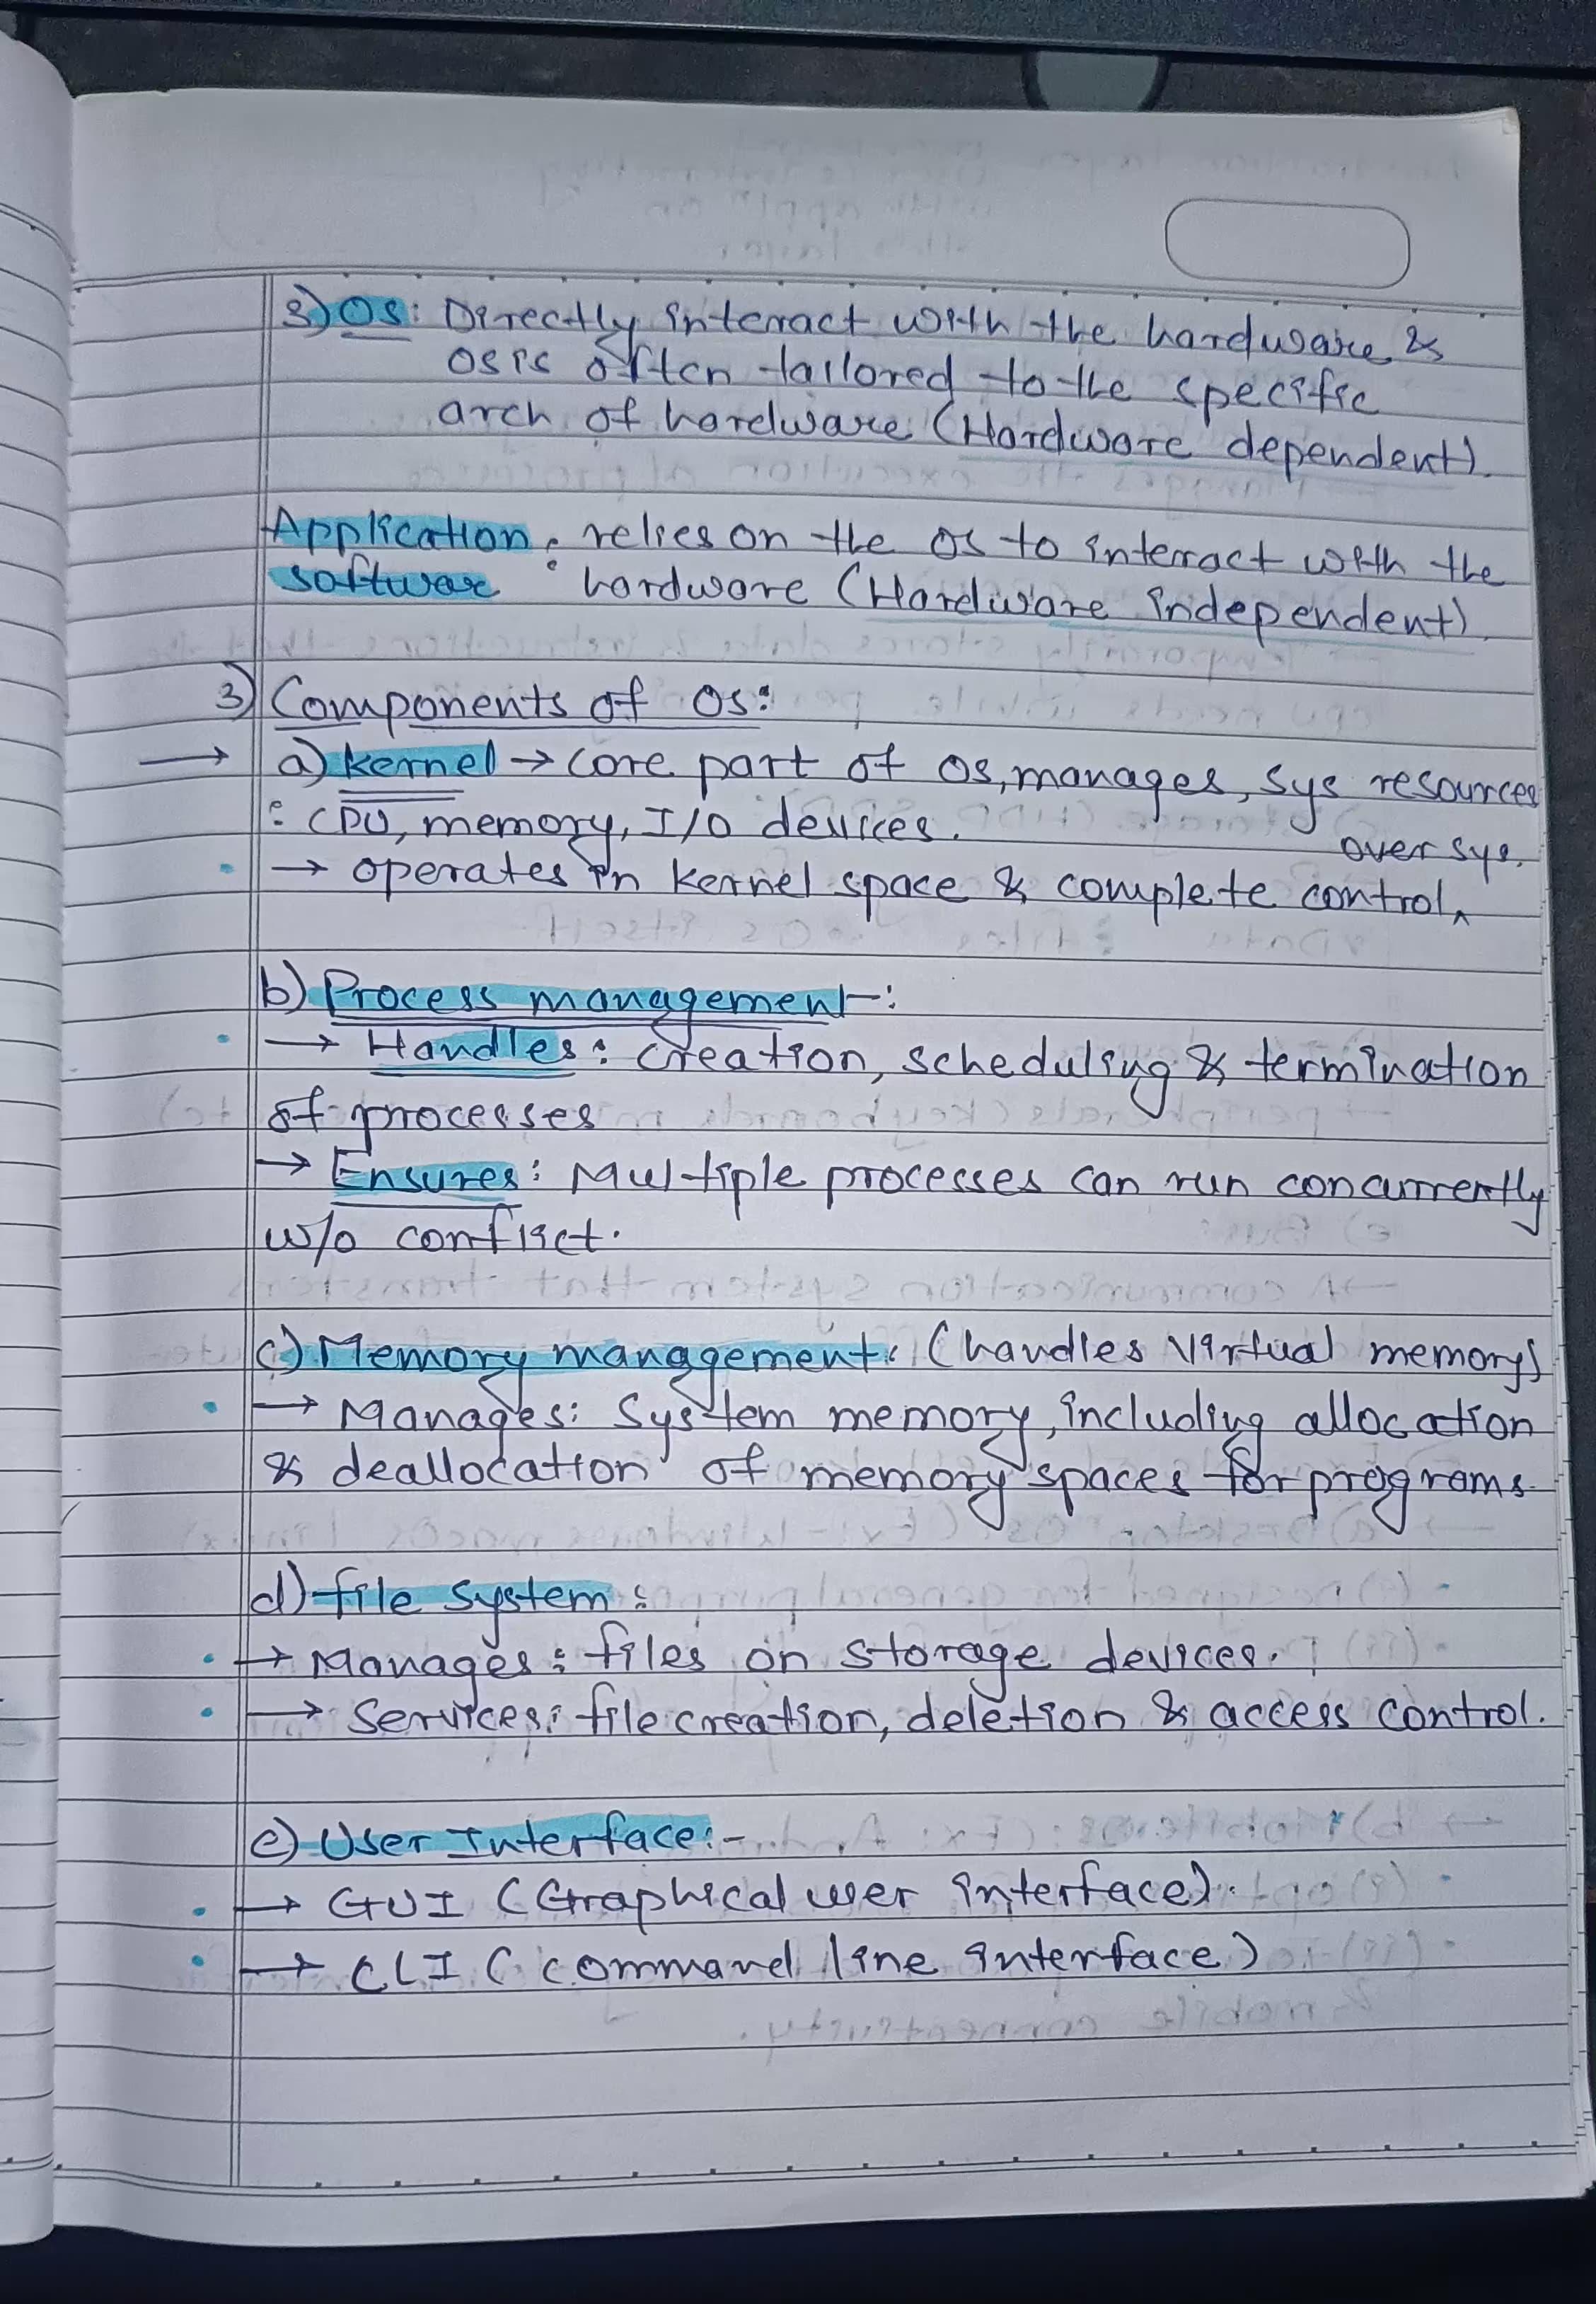 3) OS: Directly interact with the hardware &
OS is often tailored to the specific
arch of hardware (Hardware dependent).
Application : relies on the OS to interact with the
software hardware (Hardware independent).
3) Components of OS:
→ a) kernel → core part of OS, manages, sys resources
: CPU, memory, I/O devices.
over sys.
→ operates in kernel space & complete control^
b) Process management-:
→ Handles: creation, scheduling & termination
of processes
→ Ensures: Multiple processes can run concurrently
w/o conflict.
c) Memory management: (handles Virtual memory)
→ Manages: System memory, including allocation
& deallocation of memory spaces for programs.
d) file system:
→ Manages: files on storage devices.
→ Services: file creation, deletion & access control.
e) User Interface:-
→ GUI (Graphical user interface).
→ CLI (command line interface)